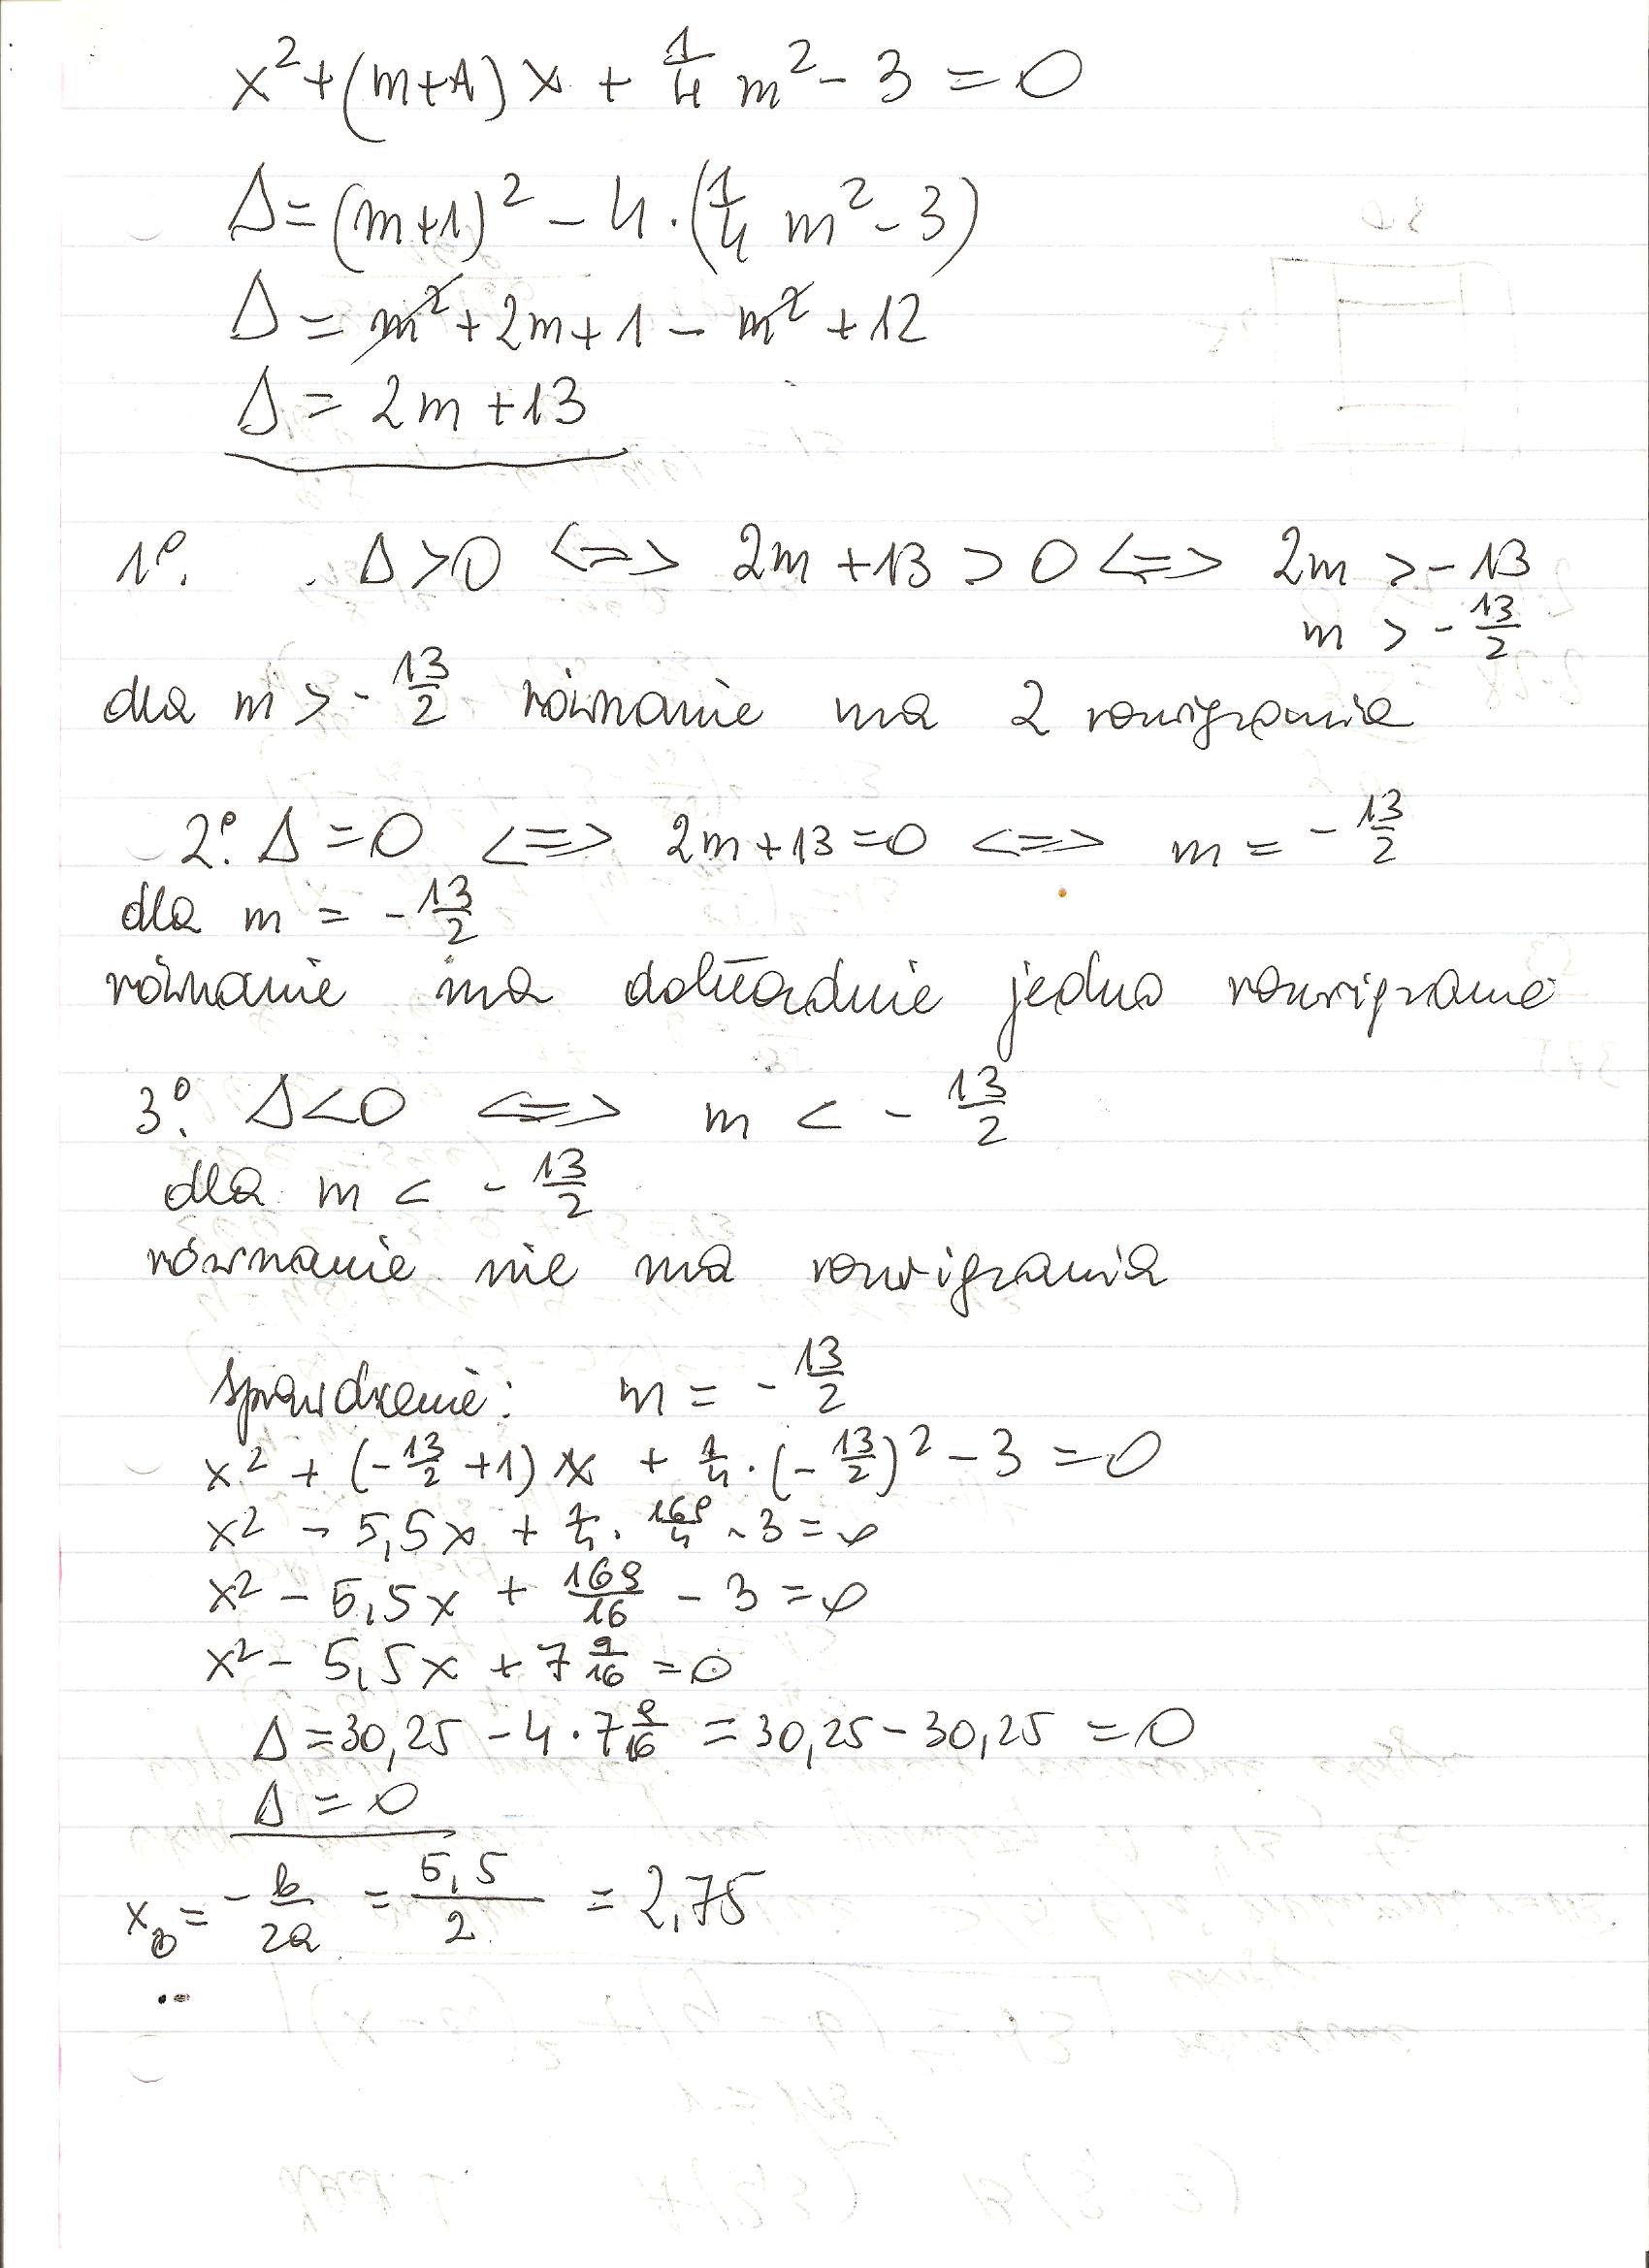 x² + (m+1) x + 1/4 m² - 3 = 0
Δ = (m+1)² - 4 · (1/4 m² - 3)
Δ = m² + 2m + 1 - m² + 12
Δ = 2m + 13
1°. Δ > 0 <=> 2m + 13 > 0 <=> 2m > -13
m > - 13/2
dla m > - 13/2 równanie ma 2 rozwiązania
2°. Δ = 0 <=> 2m + 13 = 0 <=> m = - 13/2
dla m = - 13/2
równanie ma dokładnie jedno rozwiązanie
3°. Δ < 0 <=> m < - 13/2
dla m < - 13/2
równanie nie ma rozwiązania
sprawdzenie: m = - 13/2
x² + (- 13/2 + 1) x + 1/4 · (- 13/2)² - 3 = 0
x² - 5,5x + 1/4 · 169/4 - 3 = 0
x² - 5,5x + 169/16 - 3 = 0
x² - 5,5x + 7 9/16 = 0
Δ = 30,25 - 4 · 7 9/16 = 30,25 - 30,25 = 0
Δ = 0
x₀ = - b/2a = 5,5/2 = 2,75